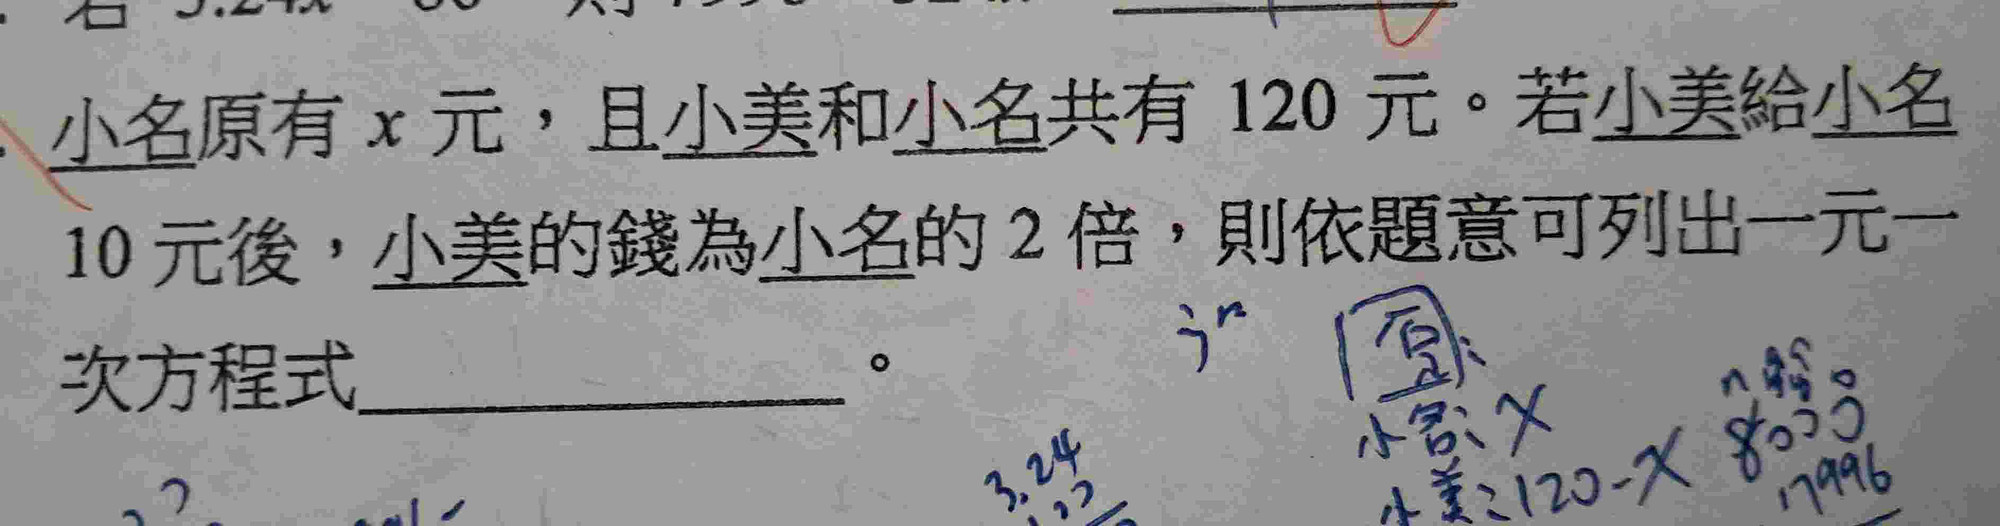 小名原有 x 元，且小美和小名共有 120 元。若小美給小名
10 元後，小美的錢為小名的 2 倍，則依題意可列出一元一
次方程式＿＿＿＿＿＿。
小名: X
小美: 120-X
8000
7996
3.24